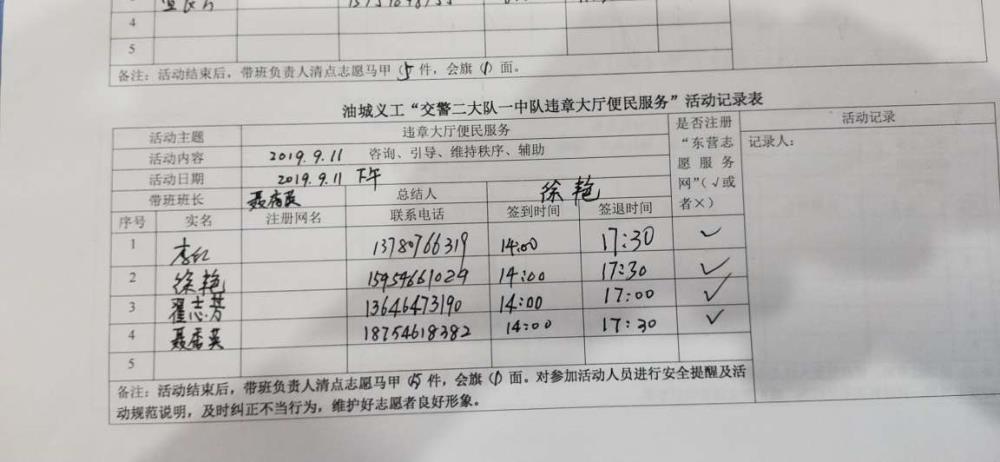 4
5
备注：活动结束后，带班负责人清点志愿马甲（5）件，会旗（1）面。
油城义工“交警二大队一中队违章大厅便民服务”活动记录表
活动主题 违章大厅便民服务 是否注册“东营志愿服务网”（√或者×） 活动记录
活动内容 2019.9.11 咨询、引导、维持秩序、辅助 记录人：
活动日期 2019.9.11 下午
带班班长 聂秀英 总结人 徐艳
序号 实名 注册网名 联系电话 签到时间 签退时间
1 李红 13780766319 14:00 17:30 ✓
2 徐艳 15954661029 14:00 17:30 ✓
3 翟志芳 13646473190 14:00 17:00 ✓
4 聂秀英 18754618382 14:00 17:30 ✓
5
备注：活动结束后，带班负责人清点志愿马甲（5）件，会旗（1）面。对参加活动人员进行安全提醒及活
动规范说明，及时纠正不当行为，维护好志愿者良好形象。